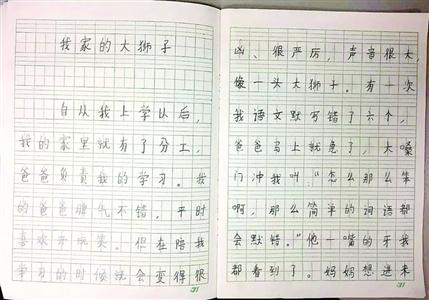 我家的大狮子
自从我上学以后，
我的家里就有了分工，
爸爸负责我的学习。我
的爸爸脾气不错，平时
喜欢开玩笑。但在陪我
学习的时候就会变得很
31
凶、很严厉，声音很大，
像一头大狮子。有一次
我语文默写错了六个，
爸爸马上就急了，大嗓
门冲我叫：“怎么那么笨
啊，那么简单的词语都
会默错。”他一嘴的牙我
都看到了。妈妈想进来
31